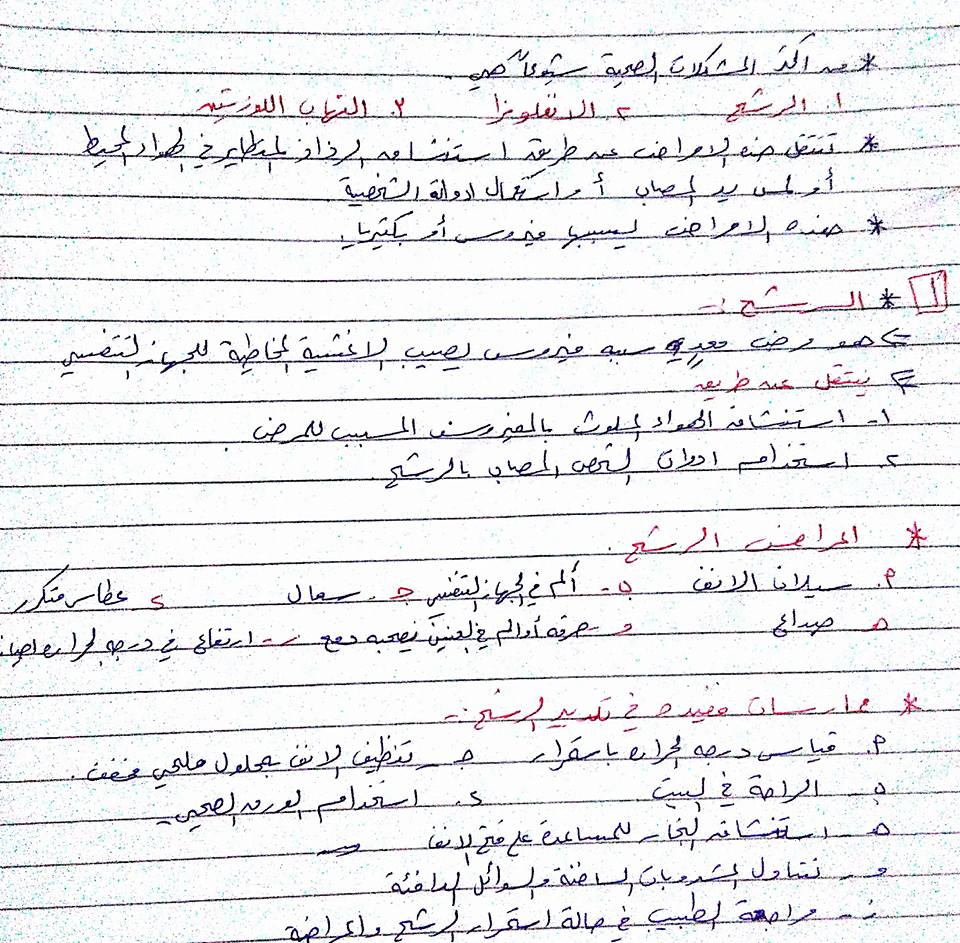 * من أكثر المشكلات الصحية شيوعاً هي.
١. الرشح ٢. الانفلونزا ٣. التهاب اللوزتين
* تنتقل هذه الامراض عن طريق استنشاق الرذاذ المتطاير في الهواء المحيط
أو لمس يد المصاب أو استعمال ادواته الشخصية
* هذه الامراض يسببها فيروس أو بكتيريا.
١ * الرشح :-
<= هو مرض معدي سببه فيروس يصيب الاغشية المخاطية للجهاز التنفسي
<= ينتقل عن طريق
١- استنشاق الهواء الملوث بالفيروس المسبب للمرض
٢. استخدام ادوات الشخص المصاب بالرشح.
* اعراض الرشح.
أ. سيلان الانف ب- ألم في الجهاز التنفسي ج. سعال د عطاس متكرر
ه صداع و- حرقه أو ألم في العينين يصحبه دمع ز- ارتفاع في درجه الحراره احيانا
* ممارسات مفيده في تدبير الرشح :-
أ. قياس درجه الحراره باستمرار ج- تنظيف الانف بمحلول ملحي مخفف.
ب- الراحة في البيت د. استخدام الورق الصحي
ه- استنشاق البخار للمساعدة على فتح الانف
و- تناول المشروبات الساخنة والسوائل الدافئة
ز- مراجعة الطبيب في حالة استمرار الرشح واعراضه